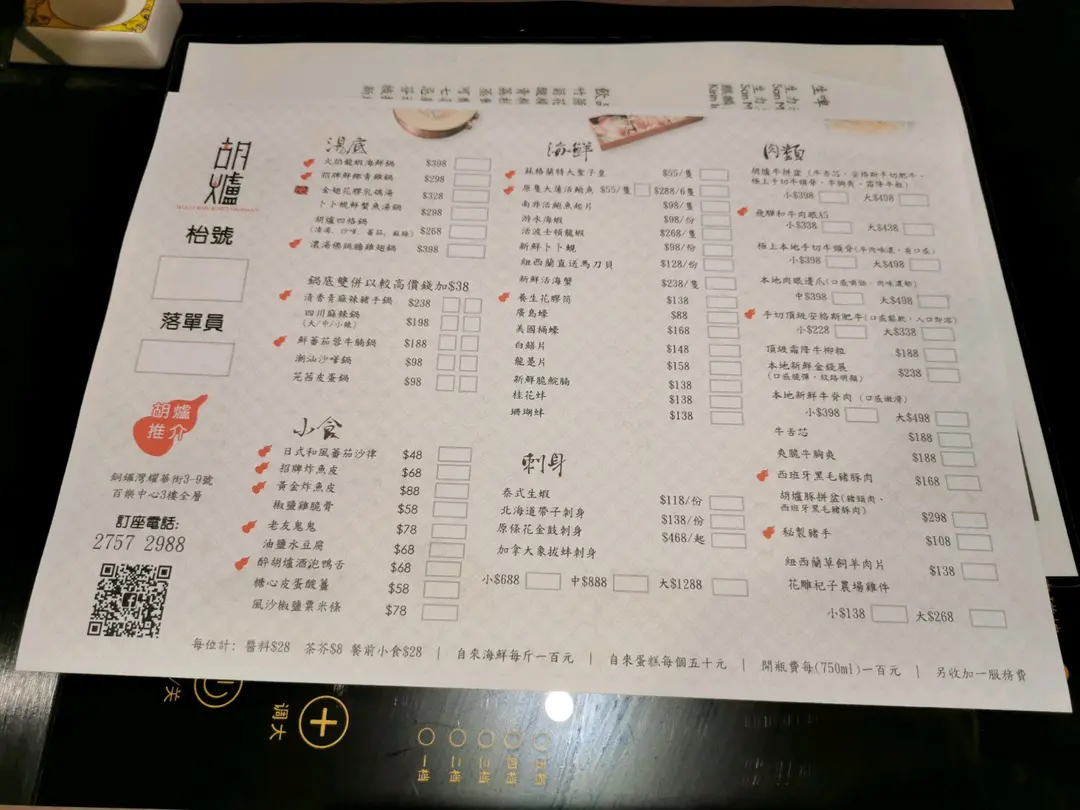 胡
爐
枱號
落單員
胡爐
推介
銅鑼灣耀華街3-9號
百樂中心3樓全層
訂座電話:
2757 2988
湯底
火焰龍蝦海鮮鍋 $398
招牌鮮椰青雞鍋 $298
金翅花膠乳鴿湯 $328
卜卜蜆鮮蟹魚湯鍋 $298
胡爐四格鍋 $268
(清湯、沙嗲、蕃茄、麻辣)
濃湯佛跳牆雞翅鍋 $398
鍋底雙併以較高價錢加$38
清香青麻辣豬手鍋 $238
四川麻辣鍋 $198
(大/中/小辣)
鮮蕃茄蓉牛腩鍋 $188
潮汕沙嗲鍋 $98
芫茜皮蛋鍋 $98
小食
日式和風蕃茄沙律 $48
招牌炸魚皮 $68
黃金炸魚皮 $88
椒鹽雞脆骨 $58
老友鬼鬼 $78
油鹽水豆腐 $68
醉胡爐酒泡鴨舌 $68
糖心皮蛋酸薑 $58
風沙椒鹽粟米條 $78
海鮮
蘇格蘭特大聖子皇 $55/隻
原隻大蓮活鮑魚 $55/隻 $288/6隻
南非活鮑魚起片 $98/隻
游水海蝦 $98/份
活波士頓龍蝦 $268/隻
新鮮卜卜蜆 $98/份
紐西蘭直送馬刀貝 $128/份
新鮮活海蟹 $238/隻
養生花膠筒 $138
廣島蠔 $88
美國桶蠔 $168
白鱔片 $148
龍躉片 $158
新鮮脆鯇腩 $138
桂花蚌 $138
珊瑚蚌 $138
刺身
泰式生蝦 $118/份
北海道帶子刺身 $138/份
原條花金鼓刺身 $468/起
加拿大象拔蚌刺身
小$688 中$888 大$1288
肉類
胡爐牛拼盆 (牛舌芯、安格斯手切肥牛、
極上手切牛頸脊、牛胸爽、霜降牛粒)
小$398 大$498
飛驒和牛肉眼A5
小$338 大$438
極上本地手切牛頸脊(牛肉味濃,有口感)
小$398 大$498
本地肉眼邊爪(口感嫩滑、肉味濃郁)
中$398 大$498
手切頂級安格斯肥牛(口感鬆軟,入口即溶)
小$228 大$338
頂級霜降牛柳粒 $188
本地新鮮金錢展 $238
(口感煙彈,紋路明顯)
本地新鮮牛脊肉 (口感嫩滑)
小$398 大$498
牛舌芯 $188
爽脆牛胸爽 $188
西班牙黑毛豬豚肉 $168
胡爐豚拼盆(豬頸肉、
西班牙黑毛豬豚肉) $298
秘製豬手 $108
紐西蘭草飼羊肉片 $138
花雕杞子農場雞件
小$138 大$268
每位計: 醬料$28 茶芥$8 餐前小食$28 | 自來海鮮每斤一百元 | 自來蛋糕每個五十元 | 開瓶費每(750ml)一百元 | 另收加一服務費
调大
一档
二档
三档
四档
五档